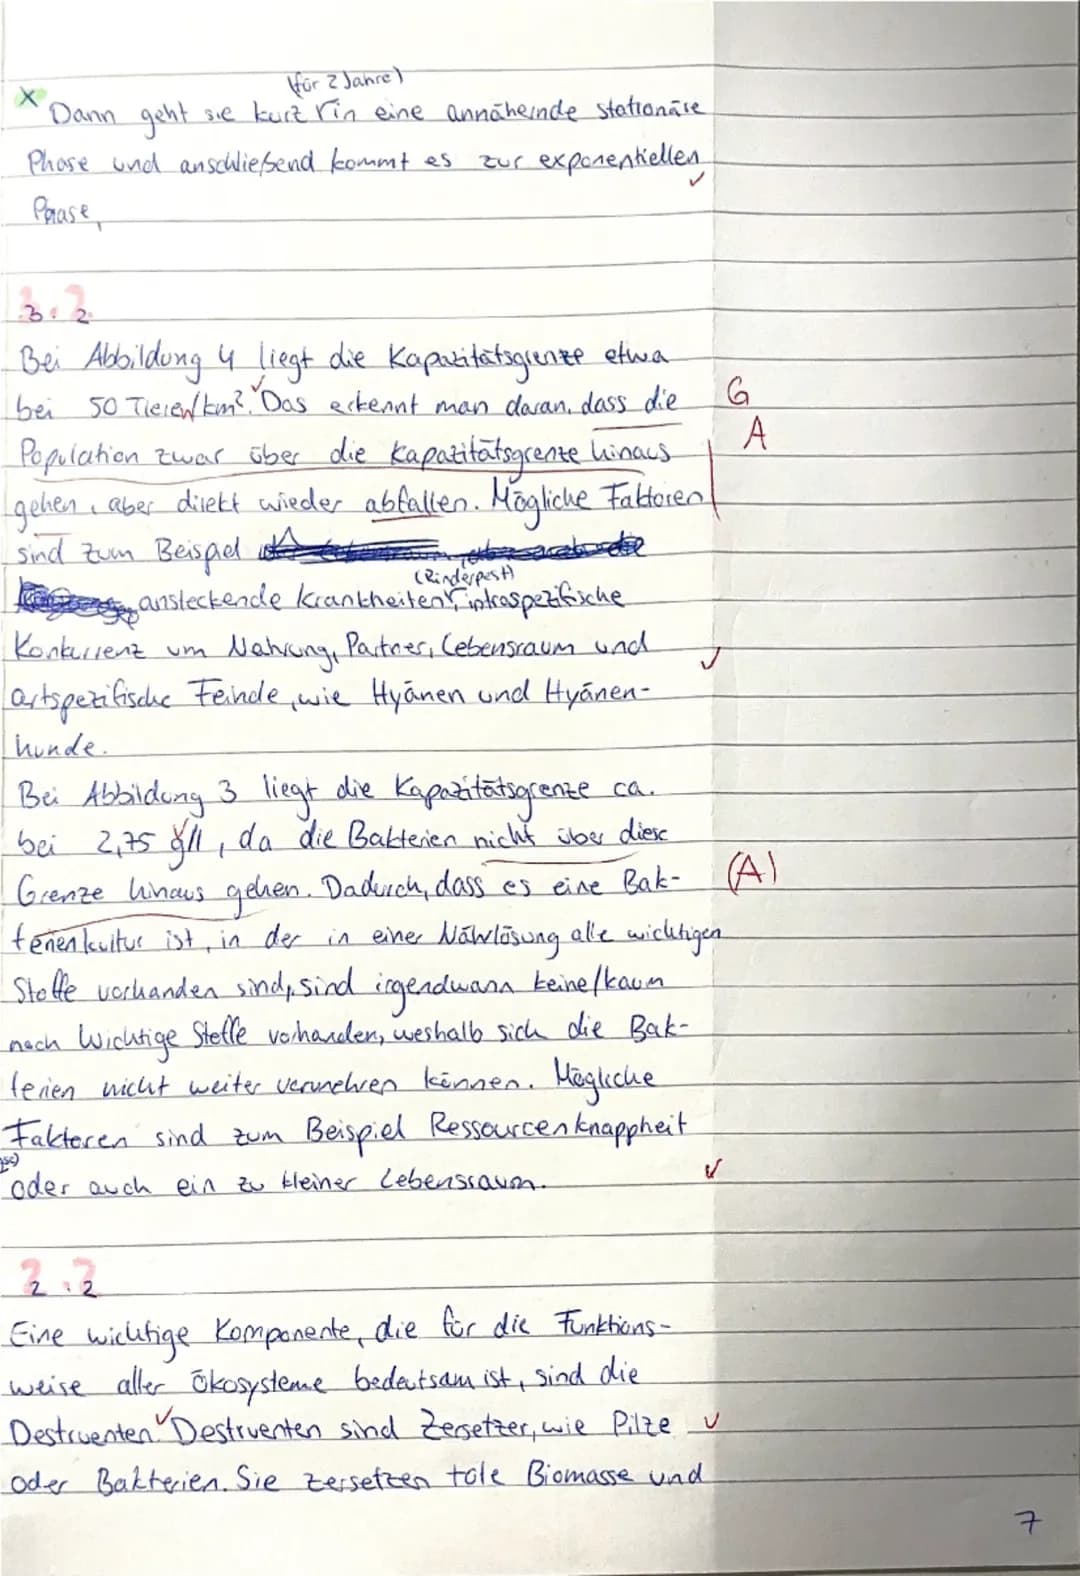 (für 2 Jahre)
X Dann geht sie kurz in eine annähernde stationäre
Phase und anschließend kommt es zur exponentiellen
Phase,
3.2
Bei Abbildung 4 liegt die Kapazitätsgrenze etwa
bei 50 Tieren/km². Das erkennt man daran, dass die G
A
Population zwar über die Kapazitätsgrenze hinaus
gehen, aber direkt wieder abfallen. Mögliche Faktoren
sind zum Beispiel
(Rinderpest)
ansteckende Krankheiten, intraspezifische
Konkurrenz um Nahrung, Partner, Lebensraum und
artspezifische Feinde, wie Hyänen und Hyänen-
hunde.
Bei Abbildung 3 liegt die Kapazitätsgrenze ca.
bei 2,75 g/l, da die Bakterien nicht über diese
Grenze hinaus gehen. Dadurch, dass es eine Bak- (A)
terienkultur ist, in der in einer Nährlösung alle wichtigen
Stoffe vorhanden sind, sind irgendwann keine/kaum
noch wichtige Stoffe vorhanden, weshalb sich die Bak-
terien nicht weiter vermehren können. Mögliche
Faktoren sind zum Beispiel Ressourcenknappheit
oder auch ein zu kleiner Lebensraum.
2.2
Eine wichtige Komponente, die für die Funktions-
weise aller Ökosysteme bedeutsam ist, sind die
Destruenten. Destruenten sind Zersetzer, wie Pilze
oder Bakterien. Sie zersetzen tote Biomasse und
7